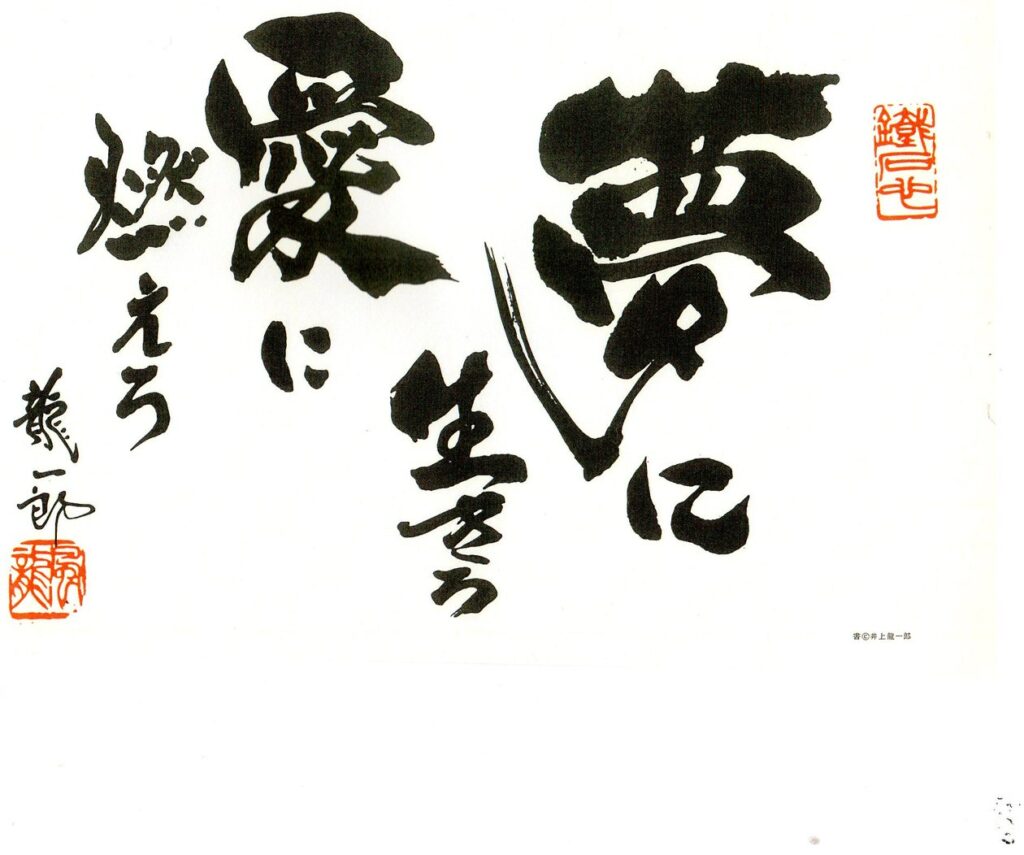 夢に
生きろ
愛に
燃えろ
龍一郎
書©井上龍一郎